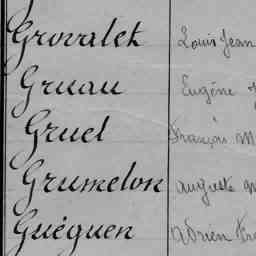 Grovalet Louis Jean
Gruau Eugène
Gruel François M
Grumelon auguste
Guéguen adrien Fra